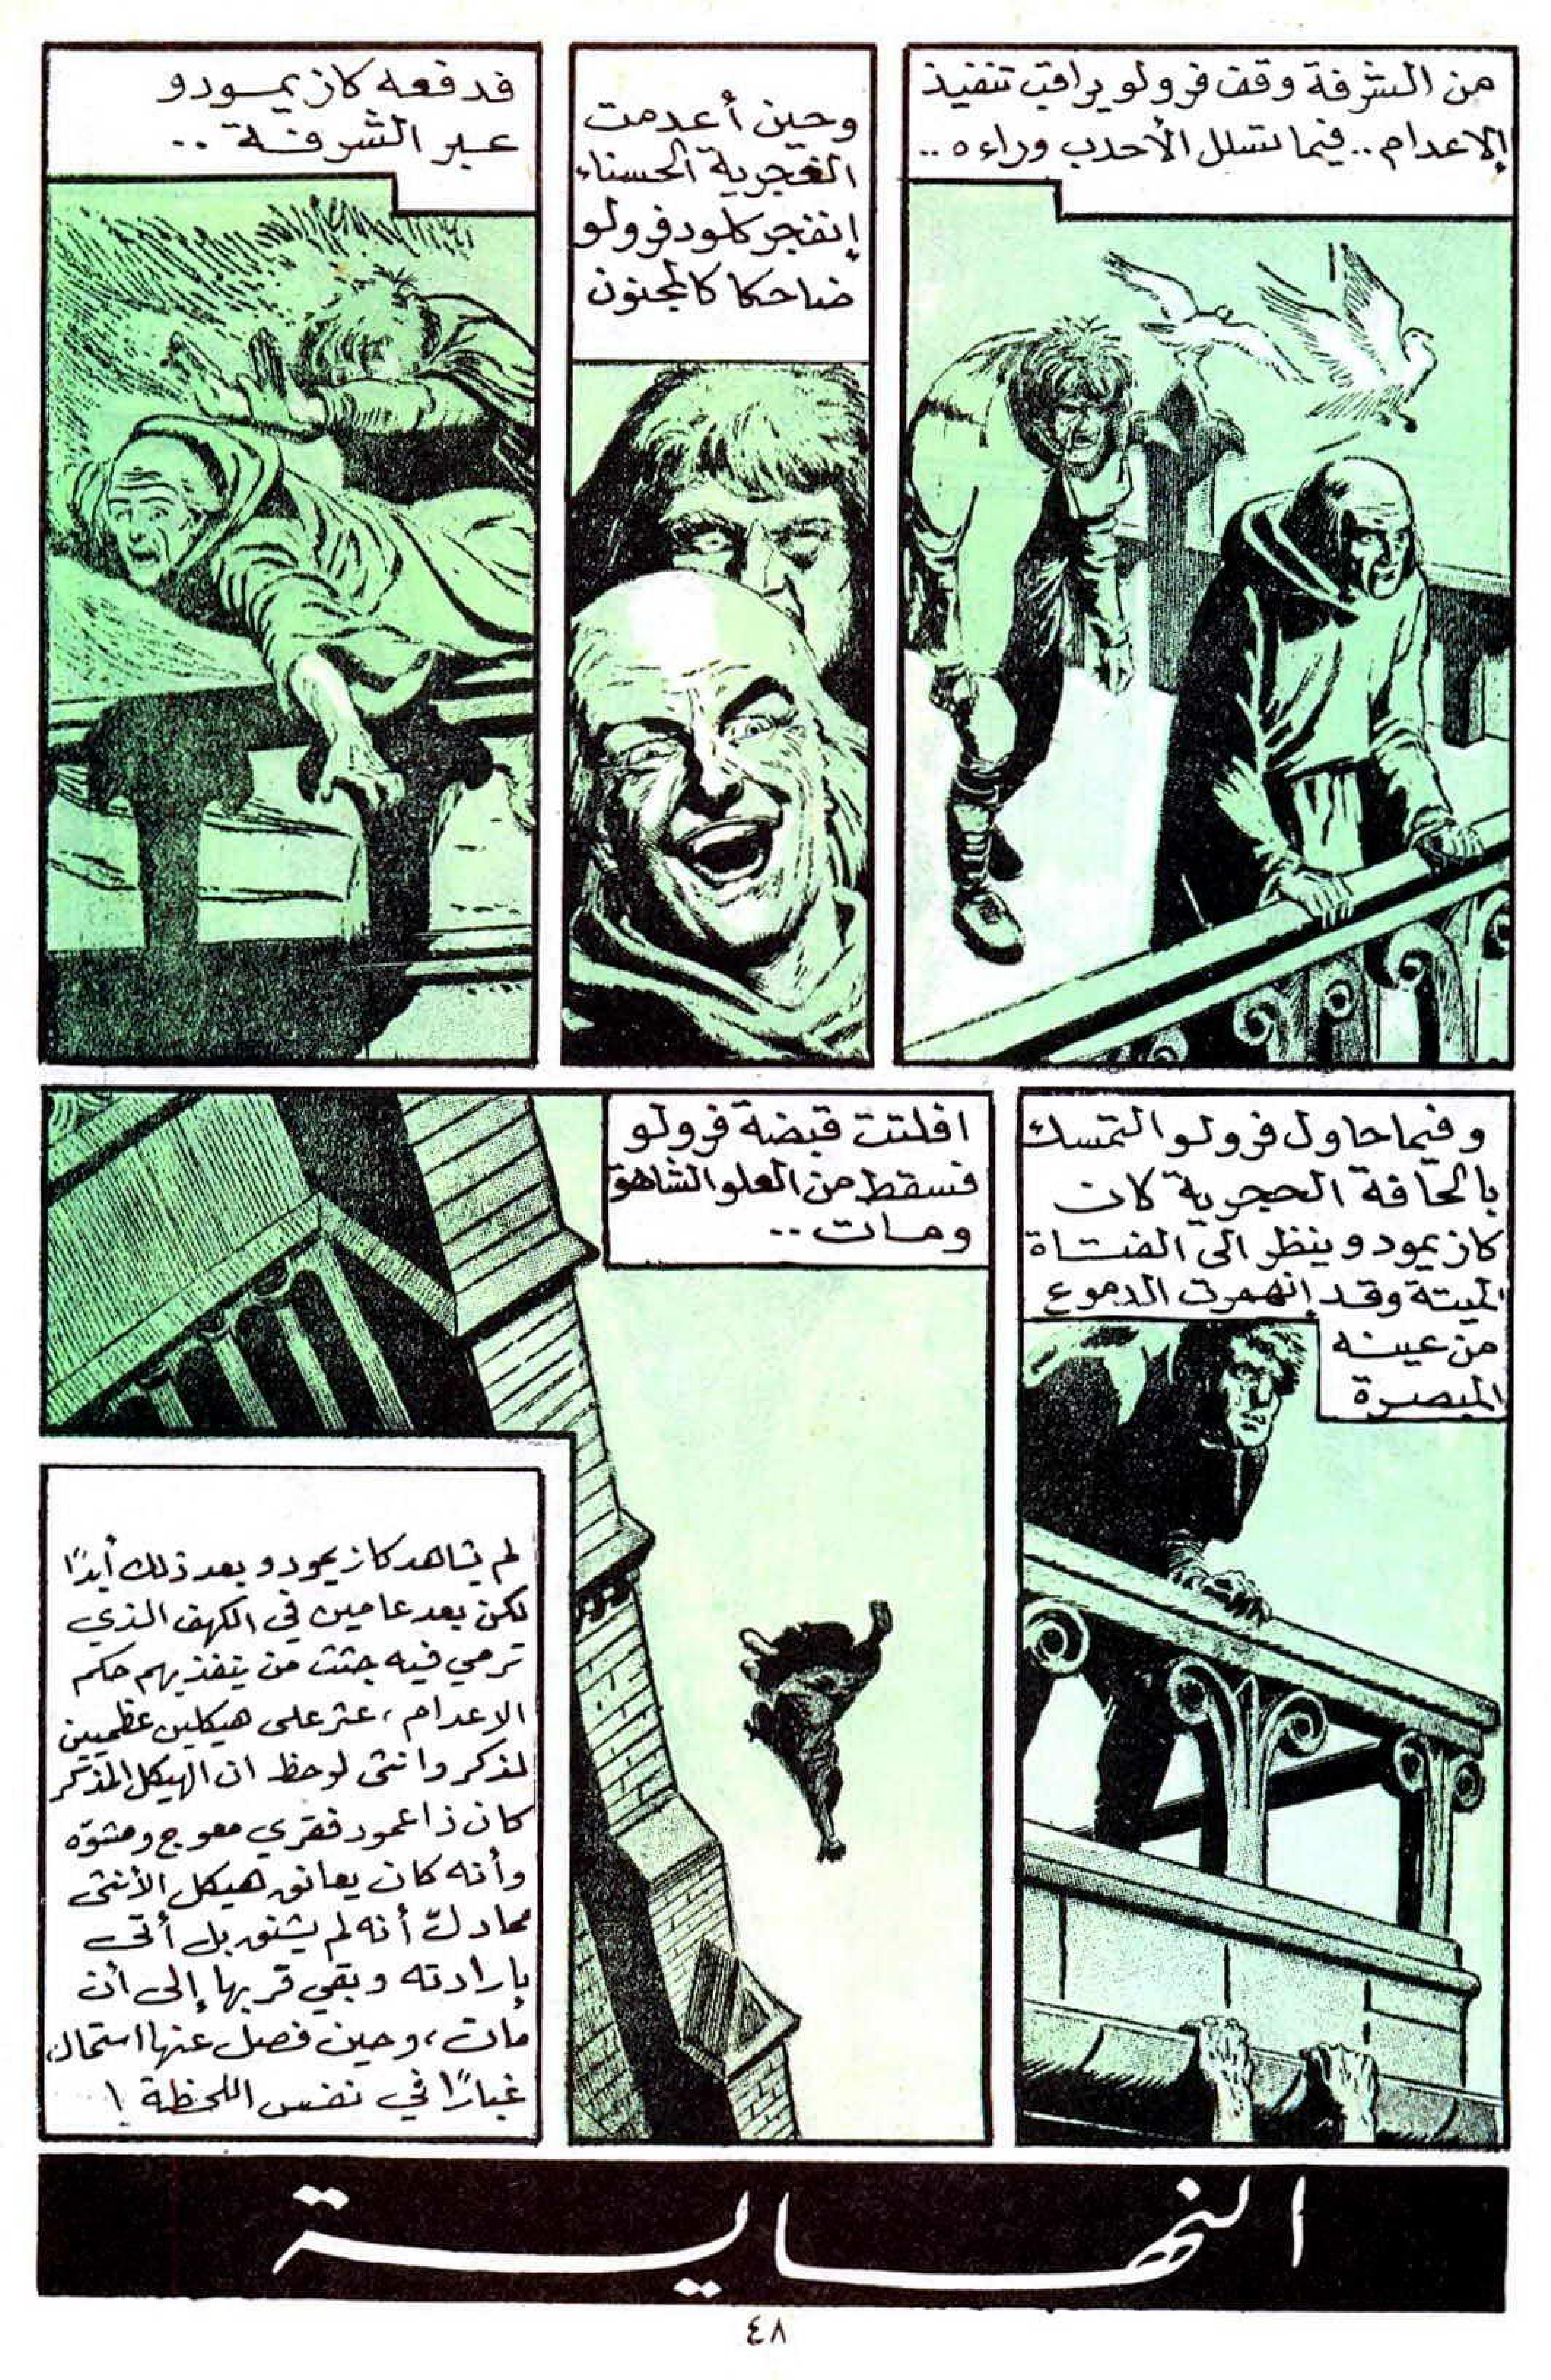 من الشرفة وقف فرولو يراقب تنفيذ
الاعدام.. فيما تسلل الأحدب وراءه..
وحين أعدمت
الغجرية الحسناء
إنفجر كلود فرولو
ضاحكا كالمجنون
فدفعه كازيمودو
عبر الشرفة..
وفيما حاول فرولو التمسك
بالحافة الحجرية كان
كازيمودو ينظر الى الفتاة
الميتة وقد إنهمرت الدموع
من عينه
المبصرة
افلتت قبضة فرولو
فسقط من العلو الشاهق
ومات..
لم يشاهد كازيمودو بعد ذلك أبدًا
لكن بعد عامين في الكهف الذي
ترمي فيه جثث من ينفذ بهم حكم
الاعدام، عثر على هيكلين عظميين
لمذكر وانثى لوحظ ان الهيكل المذكر
كان ذا عمود فقري معوج ومشوّه
وأنه كان يعانق هيكل الأنثى
مما دلّ أنه لم يشنق بل أتى
بإرادته وبقي قربها إلى أن
مات، وحين فصل عنها استحال
غبارًا في نفس اللحظة !
النهاية
٤٨